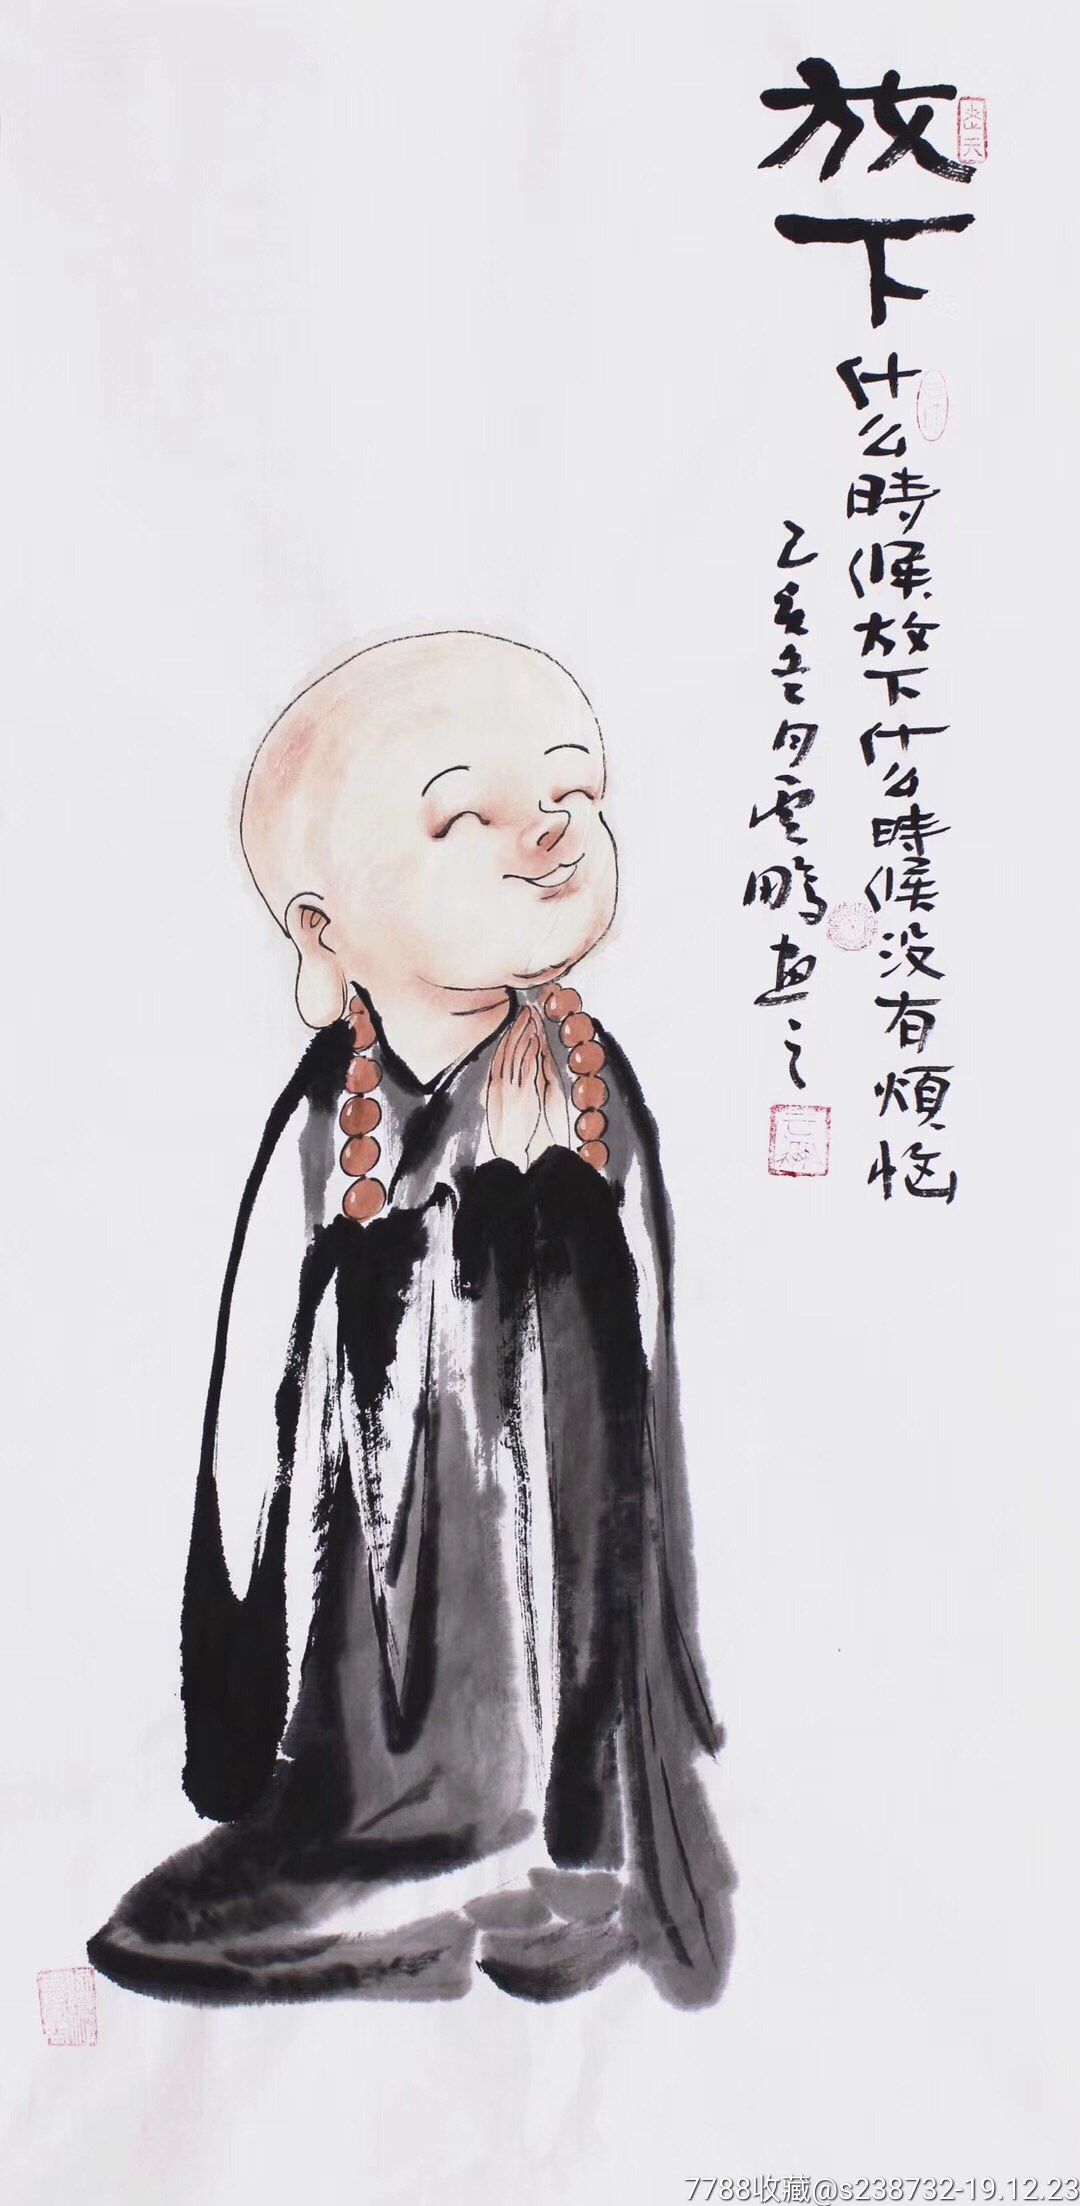 放下
什么時候放下什么時候没有煩恼
己亥月雲鵬画之
7788收藏@s238732-19.12.23